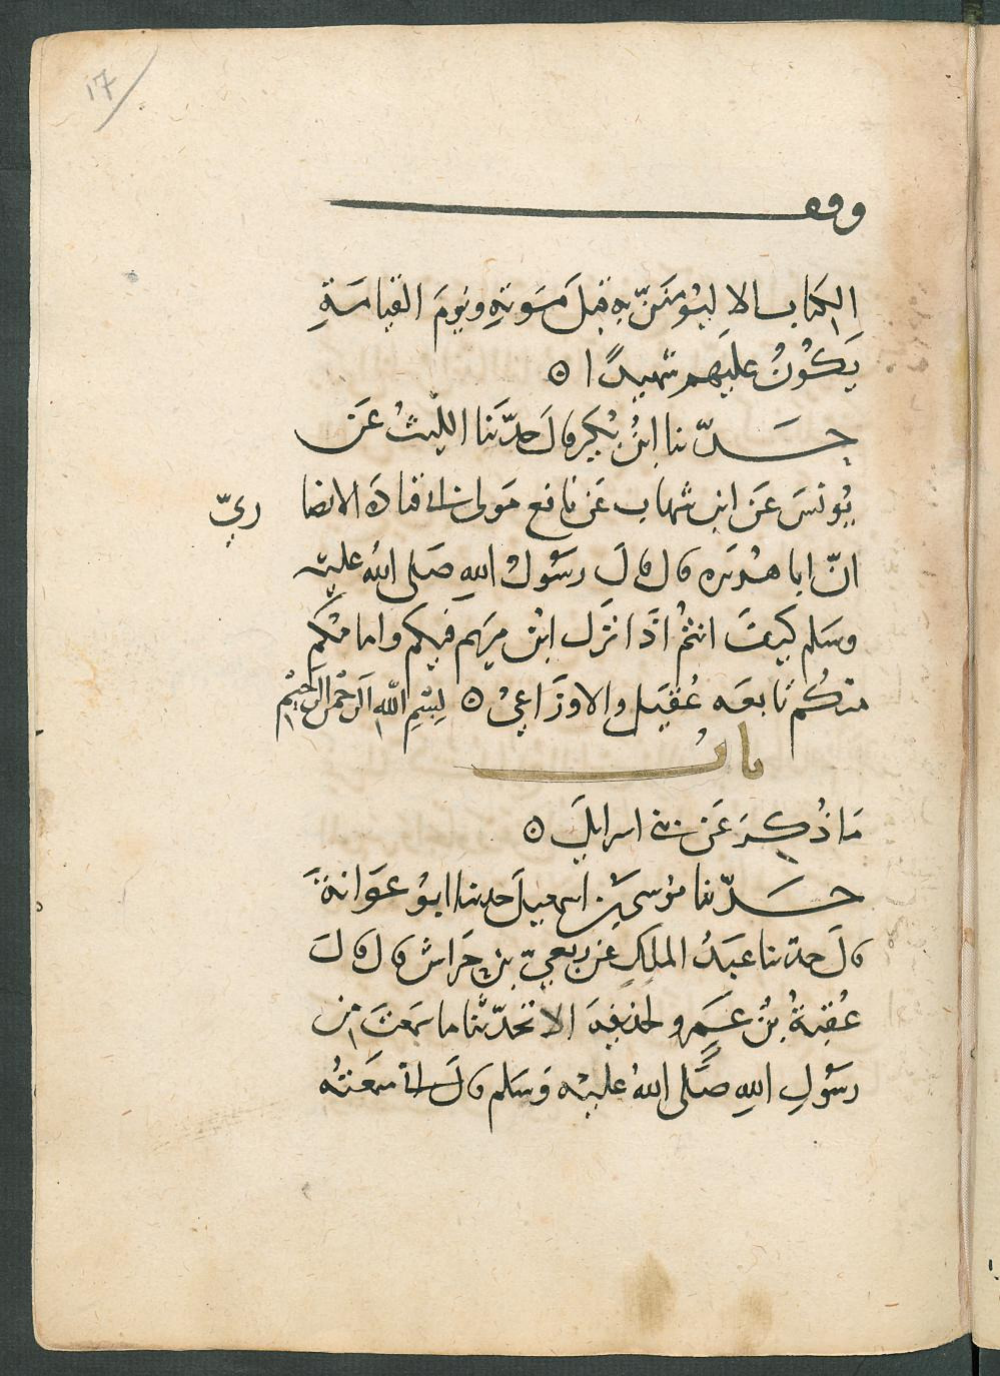 17
وقف
الكتاب الا ليؤمنن به قبل موته ويوم القيامة
يكون عليهم شهيدا ه
حدّثنا ابن بكير قال حدّثنا الليث عن
يونس عن ابن شهاب عن نافع مولى ابى قتادة الانصا رىّ
انّ ابا هريره قال قال رسول الله صلى الله عليه
وسلم كيف انتم اذا نزل ابن مريم فيكم وامامكم
منكم تابعه عقيل والاوزاعىُّ ه بسم الله الرحمن الرحيم
باب
ما ذكر عن بنى اسرايل ه
حدّثنا موسى بن اسمعيل حدثنا ابو عوانة
قال حدّثنا عبد الملك عن ربعىّ بن حراش قال قال
عقبة بن عمرو لحذيفة الا تحدّثنا ما سمعت من
رسول الله صلّى الله عليه وسلم قال انى سمعته